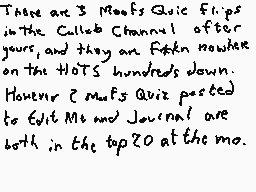 There are 3 Moofs Quiz flips
in the Collab Channel after
yours, and they are F**kn nowhere
on the HOTS hundreds down.
However 2 Moofs Quiz posted
to Edit Me and Journal are
both in the top 20 at the mo.